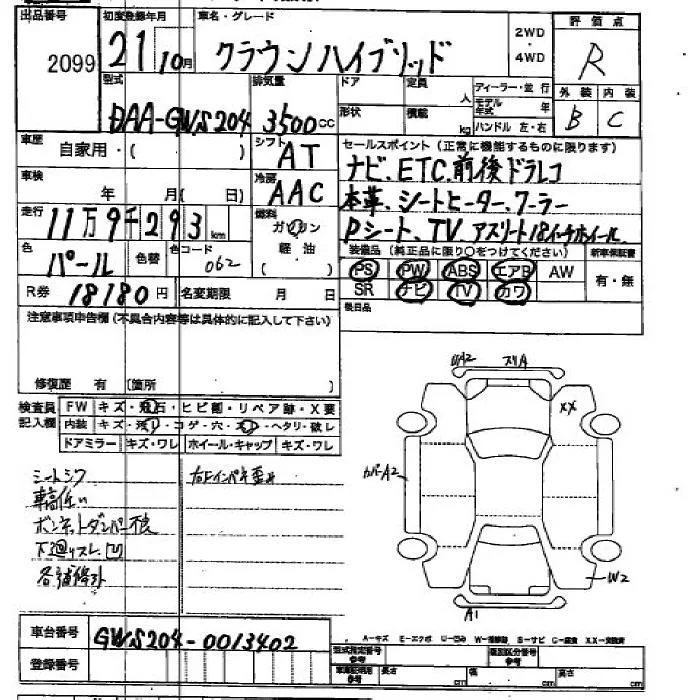 出品番号 初度登録年月 車名・グレード 2WD・4WD 評価点
2099 21 10月 クラウンハイブリッド R
型式 排気量 ドア 定員 人 ディーラー・並行 外装 内装
DAA-GWS204 3500cc 形状 積載 kg モデル年式 年 ハンドル 左・右 B C
車歴 自家用・( ) シフト AT セールスポイント(正常に機能するものに限ります)
ナビ、ETC、前後ドラレコ
車検 年 月( 日) 冷房 AAC 本革、シートヒーター、クーラー
走行 11万9千293km 燃料 ガソリン 軽油 ( ) Pシート、TV アスリート18インチホイール
色 パール 色替 色コード 062 装備品(純正品に限り〇をつけてください) 新車保証書
PS PW ABS エアB AW 有・無
R券 18180円 名変期限 月 日 SR ナビ TV カワ
注意事項申告欄(不具合内容等は具体的に記入して下さい) 後日品
修復歴 有 (箇所 )
検査員記入欄 FW キズ・飛石・ヒビ割・リペア跡・X要
内装 キズ・汚れ・コゲ・穴・スレ・ヘタリ・破レ
ドアミラー キズ・ワレ ホイール・キャップ キズ・ワレ
シートシワ
車高低い
ボンネットダンパー不良
下廻りスレ 凹
各補修外
A2 スリA
XX
カバーA2
W2
A1
車台番号 GWS204-0013402
A-キズ E-エクボ U-凹み W-補修跡 S-サビ C-腐食 XX-交換済
登録番号 型式指定番号 参考 類別区分番号 参考
長さ cm 幅 cm 高さ cm